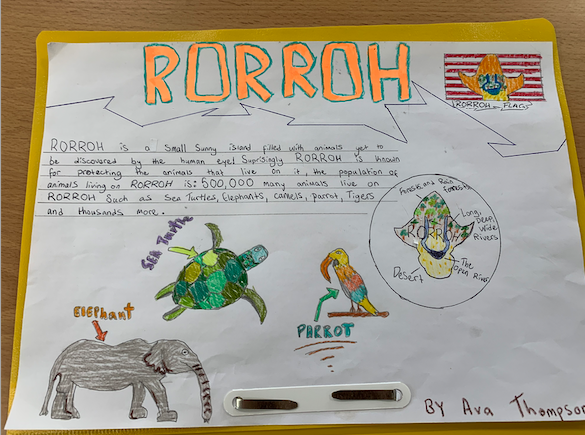 RORROH
RORROH - FLAGS
RORROH is a Small Sunny island filled with animals yet to
be discovered by the human eye! Suprisingly RORROH is known
for protecting the animals that live on it, the population of
animals living on RORROH is: 500,000 many animals live on
RORROH Such as Sea Turtles, Elephants, camels, parrot, Tigers
and thousands more.
Forests and Rain
Forests
Long,
Deep,
Wide
Rivers
RORROH
The
Open River
Desert
Sea Turtle
PARROT
ElEPHant
BY Ava Thompson